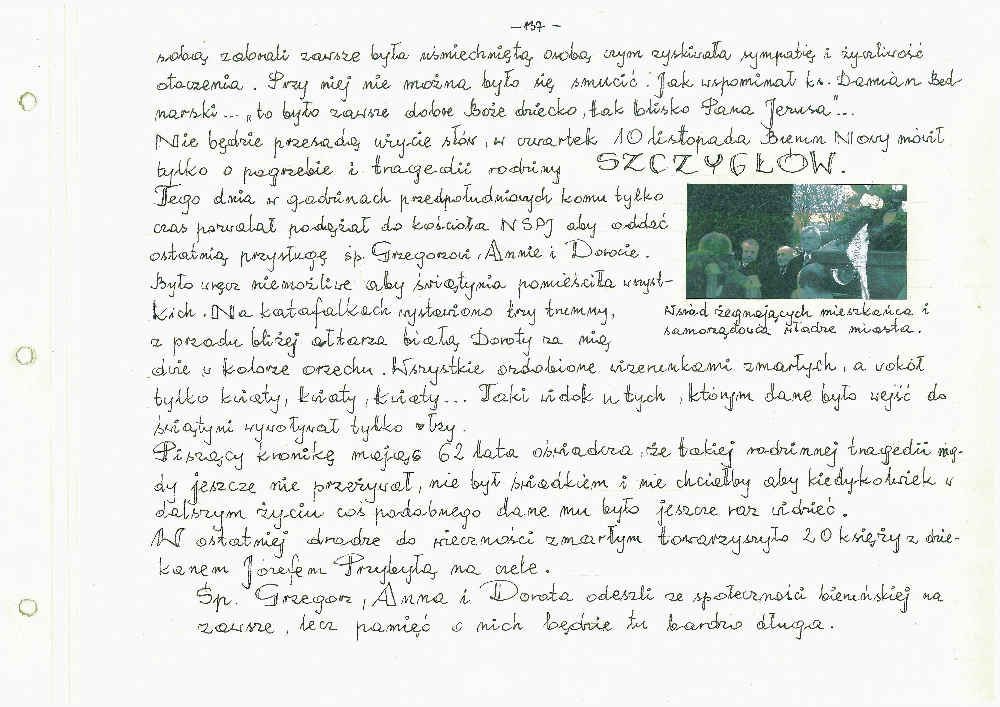 -137-
sobą zabrali zawsze była uśmiechniętą osobą czym zyskiwała sympatię i życzliwość
otoczenia. Przy niej nie można było się smucić. Jak wspominał ks. Damian Bed-
narski... „to było zawsze dobre Boże dziecko, tak blisko Pana Jezusa"...
Nie będzie przesadą użycie słów, w czwartek 10 listopada Bieruń Nowy mówił
tylko o pogrzebie i tragedii rodziny SZCZYGŁÓW.
Tego dnia w godzinach przedpołudniowych komu tylko
czas pozwalał podążał do kościoła NSPJ aby oddać
ostatnią przysługę śp. Grzegorzowi, Annie i Dorocie.
Było wręcz niemożliwe aby świątynia pomieściła wszyst-
kich. Na katafalkach wystawiono trzy trumny,
z przodu bliżej ołtarza białą Doroty za nią
dwie w kolorze orzechu. Wszystkie ozdobione wizerunkami zmarłych, a wokół
tylko kwiaty, kwiaty, kwiaty... Taki widok u tych, którym dane było wejść do
świątyni wywoływał tylko łzy.
Wśród żegnających mieszkańca i
samorządowca władze miasta.
Piszący kronikę mając 62 lata oświadcza, że takiej rodzinnej tragedii nig-
dy jeszcze nie przeżywał, nie był świadkiem i nie chciałby aby kiedykolwiek w
dalszym życiu coś podobnego dane mu było jeszcze raz widzieć.
W ostatniej drodze do wieczności zmarłym towarzyszyło 20 księży z dzie-
kanem Józefem Przybyłą na czele.
Śp. Grzegorz, Anna i Dorota odeszli ze społeczności bieruńskiej na
zawsze, lecz pamięć o nich będzie tu bardzo długa.